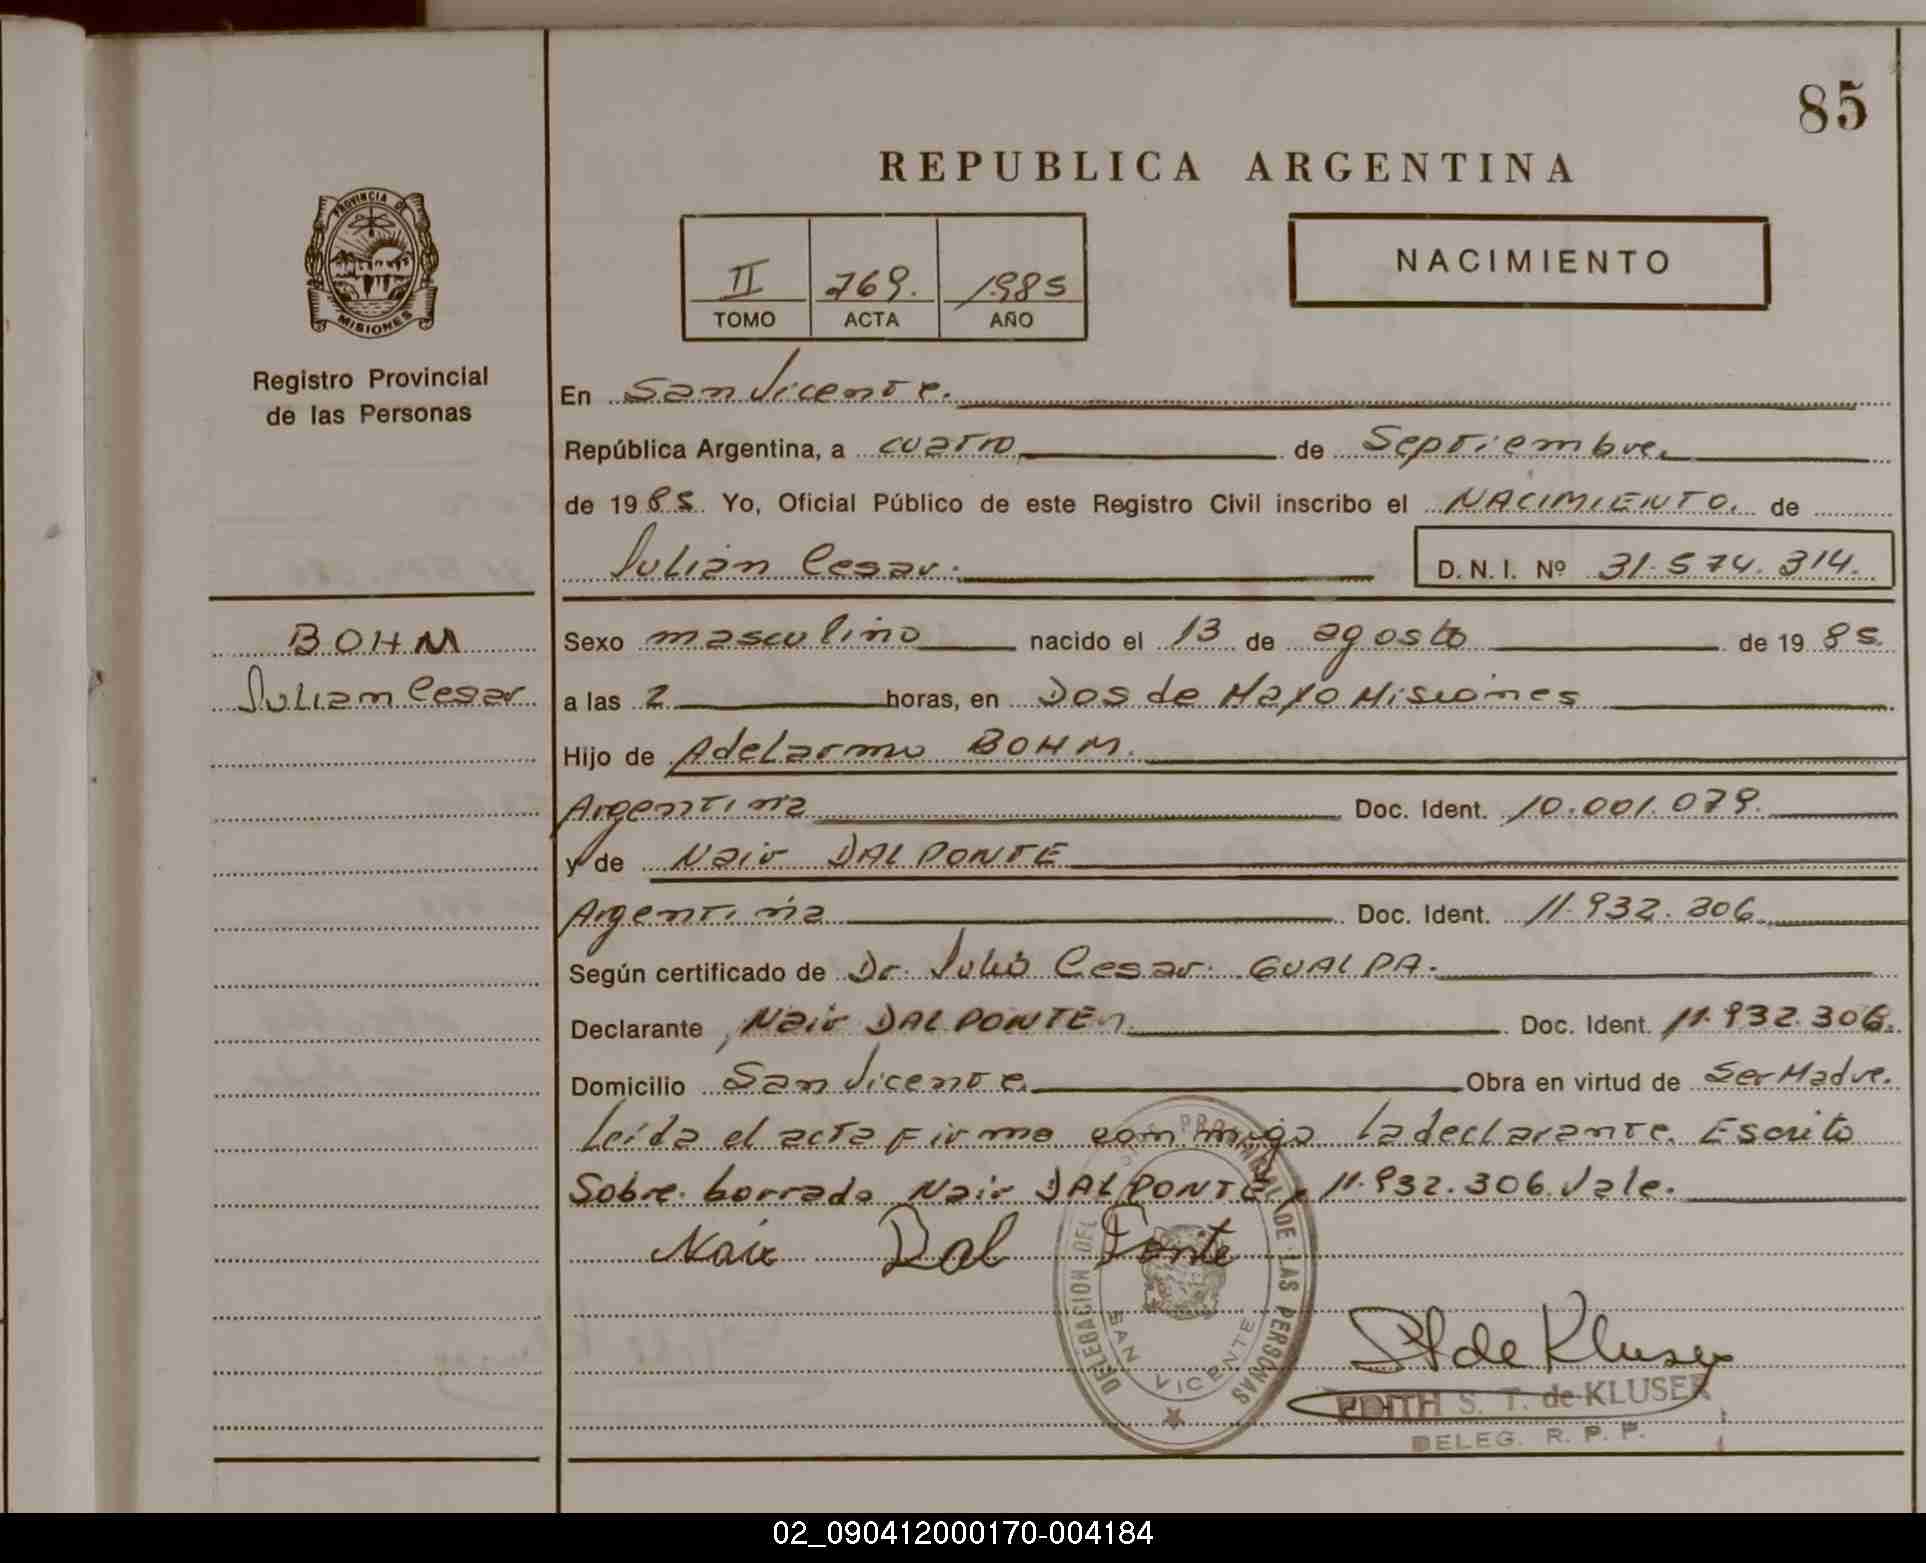 85
REPUBLICA ARGENTINA
PROVINCIA DE
MISIONES
II 769. 1985
TOMO ACTA AÑO
NACIMIENTO
Registro Provincial
de las Personas
En San Vicente.
República Argentina, a cuatro de Septiembre.
de 1985. Yo, Oficial Público de este Registro Civil inscribo el NACIMIENTO. de
Julian Cesar. D. N. I. Nº 31.574.314.
BOHM
Julian Cesar
Sexo masculino nacido el 13 de agosto de 1985.
a las 2 horas, en Dos de Mayo Misiones
Hijo de Adelarmo BOHM.
Argentina Doc. Ident. 10.001.079.
y de Nair DAL PONTE
Argentina Doc. Ident. 11.932.306
Según certificado de Dr. Julio Cesar GUALPA.
Declarante Nair DAL PONTE Doc. Ident. 11.932.306.
Domicilio San Vicente. Obra en virtud de Ser Madre.
Leida el acta firma conmigo la declarante. Escrito
Sobre borrado Nair DAL PONTE, 11.932.306. Vale.
Nair Dal Ponte
DELEGACION DEL PROVINCIAL DE LAS PERSONAS
SAN VICENTE
St de Kluser
EDITH S. T. de KLUSER
DELEG. R. P. P.
02_090412000170-004184